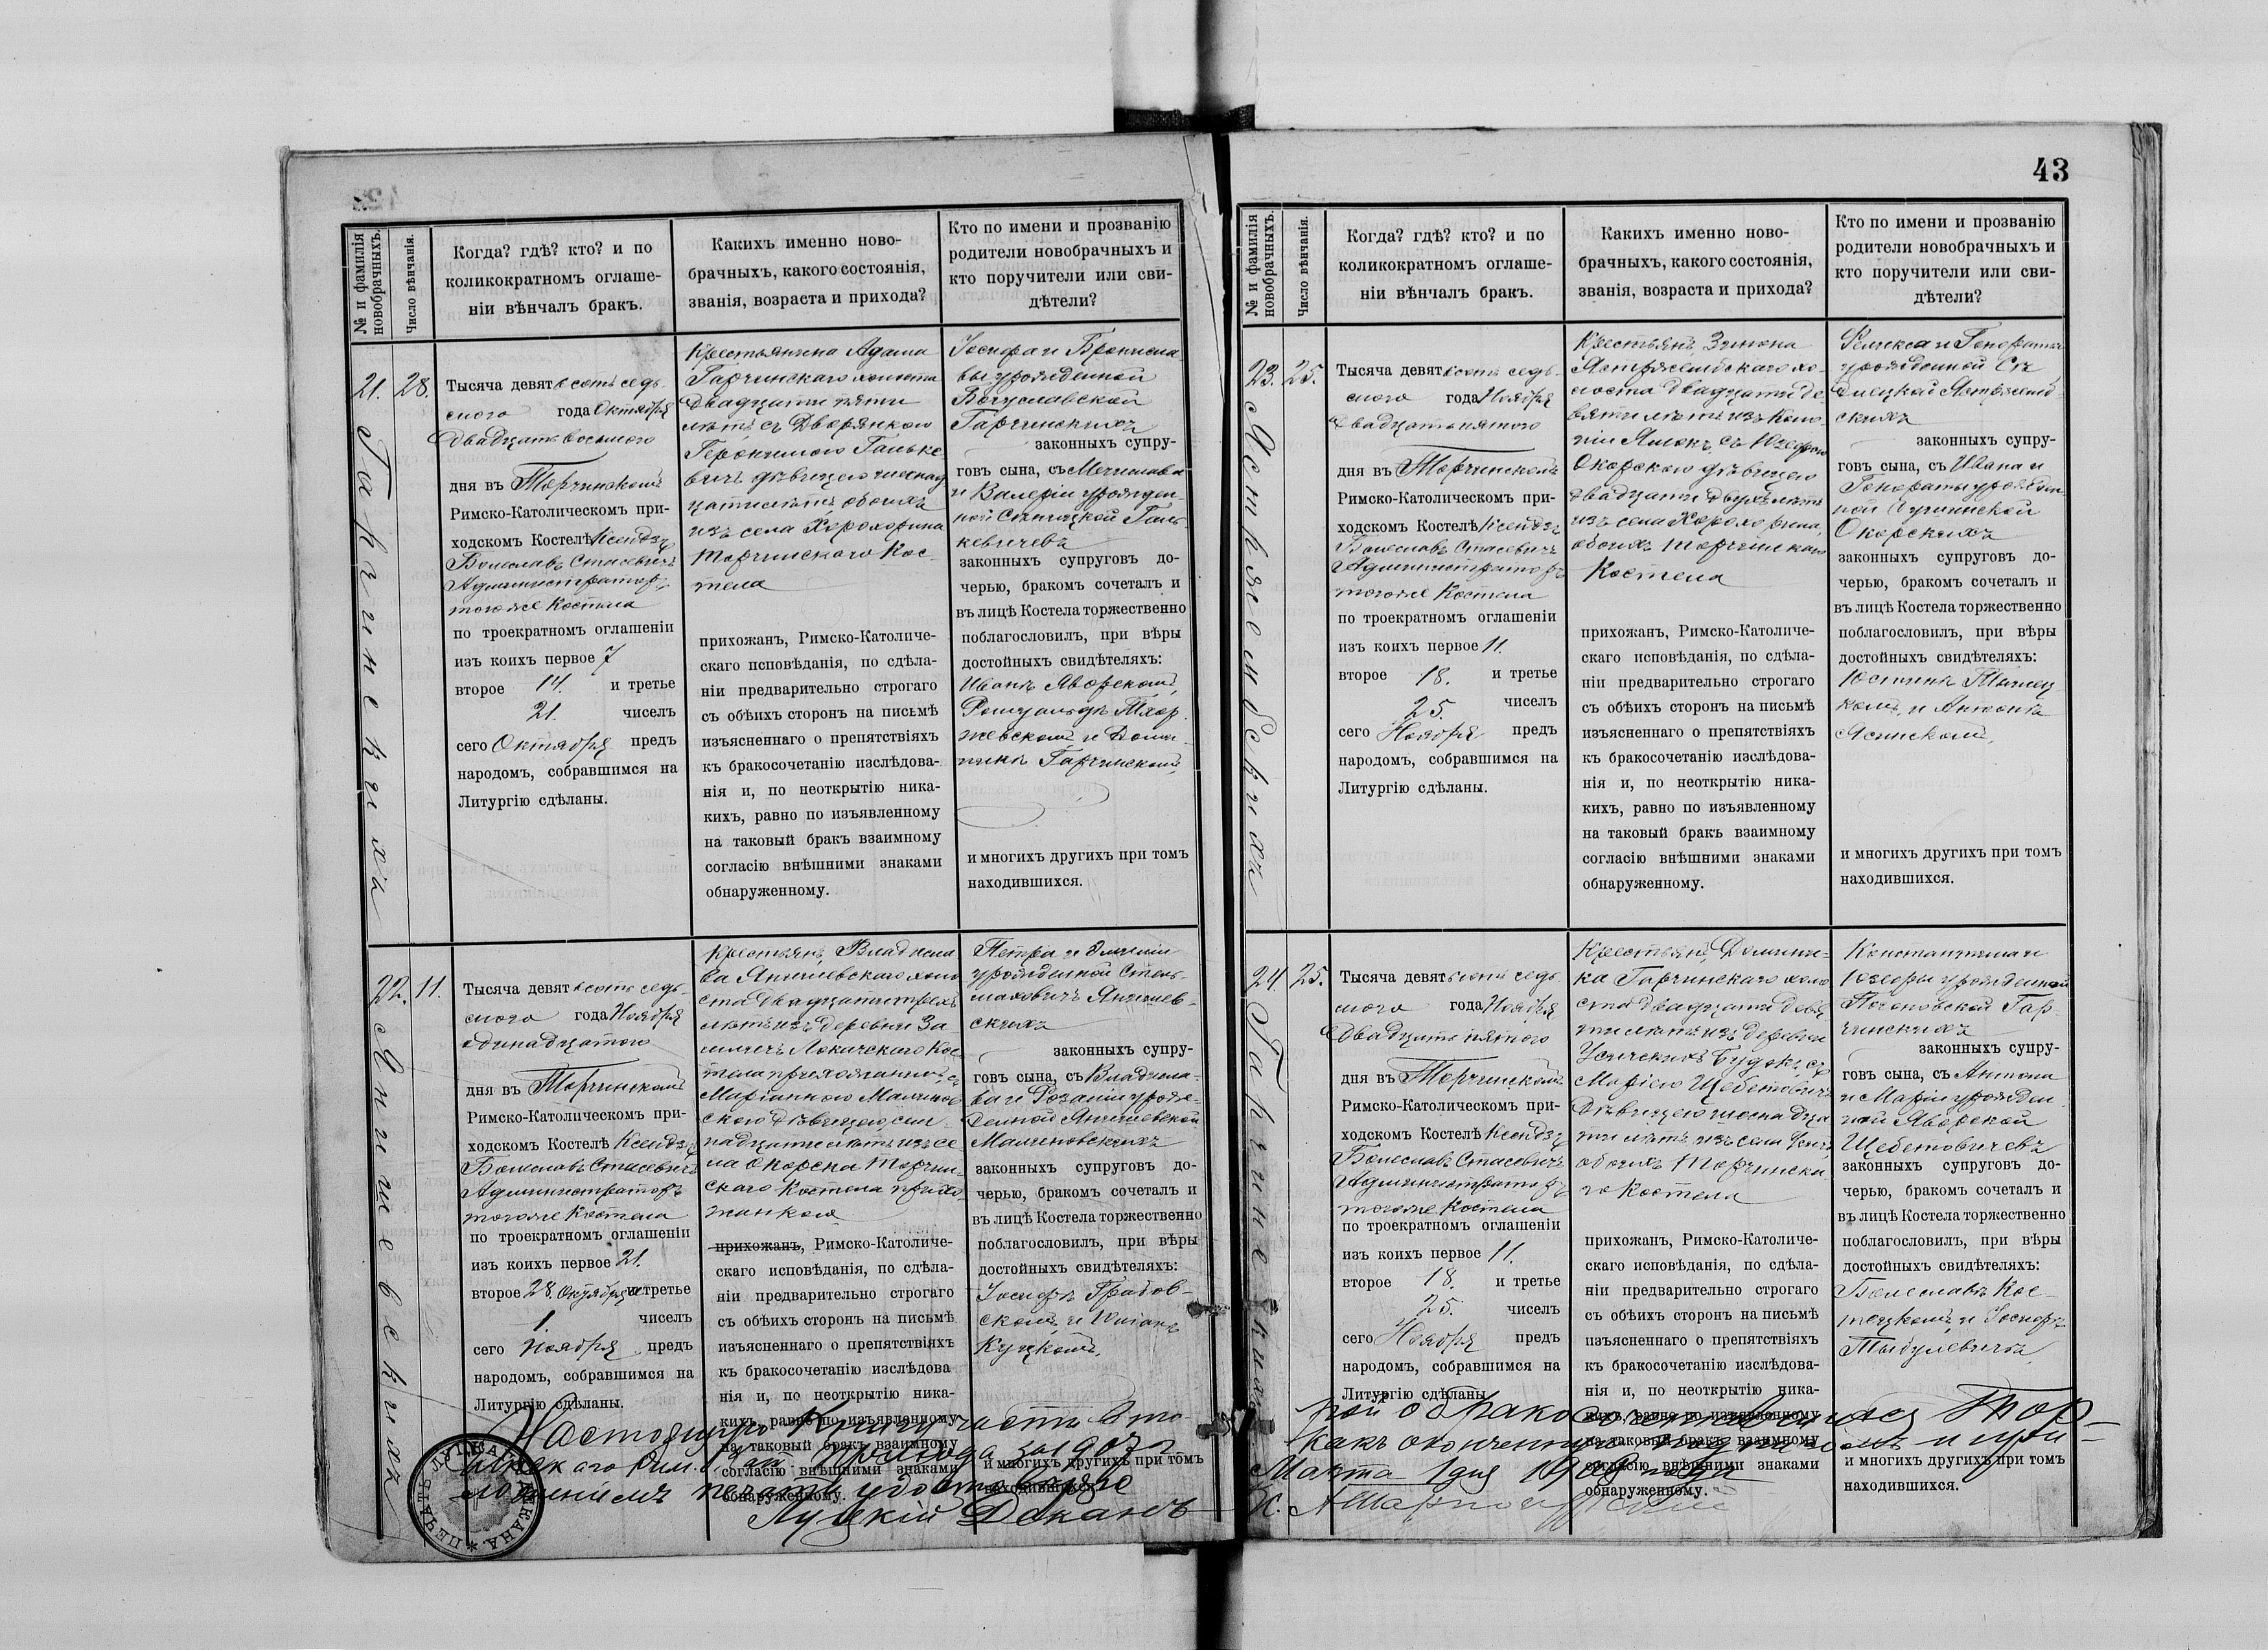 № и фамилія
новобрачныхъ.
Число вѣнчанія.
Когда? гдѣ? кто? и по
коликократномъ оглаше-
ніи вѣнчалъ бракъ.
Какихъ именно ново-
брачныхъ, какого состоянія,
званія, возраста и прихода?
Кто по имени и прозванію
родители новобрачныхъ и
кто поручители или сви-
дѣтели?
21.
Гарчинскихъ
28.
Тысяча девятьсотъ седь-
мого года Октября
Двадцать восьмого
дня въ Торчинскомъ
Римско-Католическомъ при-
ходскомъ Костелѣ Ксендзъ
Болеславъ Стасевичъ
Администраторъ
тогоже Костела
по троекратномъ оглашеніи
изъ коихъ первое 7
второе 14. и третье
21. чиселъ
сего Октября предъ
народомъ, собравшимся на
Литургію сдѣланы.
Крестьянина Адама
Гарчинскаго холоста
двадцати пяти
лѣтъ, съ Дворянкою
Геронимою Гальке-
вичъ дѣвицею шестнад
цати лѣтъ, обоихъ
изъ села Хорохорина
Торчинскаго Кос-
тела
прихожанъ, Римско-Католиче-
скаго исповѣданія, по сдѣла-
ніи предварительно строгаго
съ обѣихъ сторонъ на письмѣ
изъясненнаго о препятствіяхъ
къ бракосочетанію изслѣдова-
нія и, по неоткрытію ника-
кихъ, равно по изъявленному
на таковый бракъ взаимному
согласію внѣшними знаками
обнаруженному.
Іосифа и Брониславы
урожденной
Богуславской
Гарчинскихъ
законныхъ супру-
говъ сына, съ Мечислава
и Валеріи урожден-
ной Галь-
кевичевъ
законныхъ супруговъ до-
черью, бракомъ сочеталъ и
въ лицѣ Костела торжественно
поблагословилъ, при вѣры
достойныхъ свидѣтеляхъ:
Иванѣ Яворскомъ,
Ромуальдѣ Тхор-
жевскомъ и Доми-
никѣ Гарчинскомъ,
и многихъ другихъ при томъ
находившихся.
22.
Янишевскихъ
11.
Тысяча девятьсотъ седь-
мого года Ноября
одинадцатого
дня въ Торчинскомъ
Римско-Католическомъ при-
ходскомъ Костелѣ Ксендзъ
Болеславъ Стасевичъ
Администраторъ
тогоже Костела
по троекратномъ оглашеніи
изъ коихъ первое 21.
второе 28 Октября и третье
1. чиселъ
сего Ноября предъ
народомъ, собравшимся на
Литургію сдѣланы.
Крестьянъ, Владисла
ва Янишевскаго холо
ста двадцати трехъ
лѣтъ изъ деревни За-
Локачскаго Кос
тела прихожанина, съ
Маріанною Малинов
скою дѣвицею, сем
надцати лѣтъ, изъ се
ла Окорска Торчин-
скаго Костела прихо
жанкою
прихожанъ, Римско-Католиче-
скаго исповѣданія, по сдѣла-
ніи предварительно строгаго
съ обѣихъ сторонъ на письмѣ
изъясненнаго о препятствіяхъ
къ бракосочетанію изслѣдова
нія и, по неоткрытію ника-
кихъ, равно по изъявленному
на таковый бракъ взаимному
согласію внѣшними знаками
обнаруженному.
Петра и Эмиліи
урожденной Стель-
маховичъ Янишев-
скихъ
законныхъ супру-
говъ сына, съ Владисла-
ва и Розаліи урож-
денной Янишевской
Малиновскихъ
законныхъ супруговъ до-
черью, бракомъ сочеталъ и
въ лицѣ Костела торжественно
поблагословилъ, при вѣры
достойныхъ свидѣтеляхъ:
Іосифѣ Грабов-
скомъ и
Куцкомъ,
и многихъ другихъ при томъ
находившихся.
43
№ и фамилія
новобрачныхъ.
Число вѣнчанія.
Когда? гдѣ? кто? и по
коликократномъ оглаше-
ніи вѣнчалъ бракъ.
Какихъ именно ново-
брачныхъ, какого состоянія,
званія, возраста и прихода?
Кто по имени и прозванію
родители новобрачныхъ и
кто поручители или сви-
дѣтели?
23.
Ястржембскихъ
25.
Тысяча девятьсотъ седь-
мого года Ноября
двадцать пятого
дня въ Торчинскомъ
Римско-Католическомъ при-
ходскомъ Костелѣ Ксендзъ
Болеславъ Стасевичъ
Администраторъ
тогоже Костела
по троекратномъ оглашеніи
изъ коихъ первое 11.
второе 18. и третье
25. чиселъ
сего Ноября предъ
народомъ, собравшимся на
Литургію сдѣланы.
Крестьянъ Зенона
Ястржембскаго хо-
лоста двадцати де-
вяти лѣтъ изъ Коло-
ніи съ Юзефою
Окорскою дѣвицею
двадцати двухъ лѣтъ
изъ села Хорохорина,
обоихъ Торчинскаго
Костела
прихожанъ, Римско-Католиче-
скаго исповѣданія, по сдѣла-
ніи предварительно строгаго
съ обѣихъ сторонъ на письмѣ
изъясненнаго о препятствіяхъ
къ бракосочетанію изслѣдова-
нія и, по неоткрытію ника-
кихъ, равно по изъявленному
на таковый бракъ взаимному
согласію внѣшними знаками
обнаруженному.
Феликса и Гонораты
урожденной
Ястржемб-
скихъ
законныхъ супру-
говъ сына, съ Ивана и
Гонораты урожден-
ной
Окорскихъ
законныхъ супруговъ до-
черью, бракомъ сочеталъ и
въ лицѣ Костела торжественно
поблагословилъ, при вѣры
достойныхъ свидѣтеляхъ:
Юстинѣ
и Антонѣ
Ясинскомъ,
и многихъ другихъ при томъ
находившихся.
24.
Гарчинскихъ
25.
Тысяча девятьсотъ седь-
мого года Ноября
Двадцать пятого
дня въ Торчинскомъ
Римско-Католическомъ при-
ходскомъ Костелѣ Ксендзъ
Болеславъ Стасевичъ
Администраторъ
тогоже Костела
по троекратномъ оглашеніи
изъ коихъ первое 11.
второе 18. и третье
25. чиселъ
сего Ноября предъ
народомъ, собравшимся на
Литургію сдѣланы.
Крестьянъ, Домини-
ка Гарчинскаго холо
ста двадцати девя
ти лѣтъ изъ деревни
Усичскихъ Будокъ, съ
Маріею Щебетовичъ
дѣвицею шестнадца
ти лѣтъ изъ села
обоихъ Торчинска
го Костела
прихожанъ, Римско-Католиче-
скаго исповѣданія, по сдѣла-
ніи предварительно строгаго
съ обѣихъ сторонъ на письмѣ
изъясненнаго о препятствіяхъ
къ бракосочетанію изслѣдова-
нія и, по неоткрытію ника-
кихъ, равно по изъявленному
на таковый бракъ взаимному
согласію внѣшними знаками
обнаруженному.
Константина и
Юзефы урожденной
Гар-
чинскихъ
законныхъ супру-
говъ сына, съ Антона
и Маріи урожден-
ной Яворской
Щебетовичевъ
законныхъ супруговъ до-
черью, бракомъ сочеталъ и
въ лицѣ Костела торжественно
поблагословилъ, при вѣры
достойныхъ свидѣтеляхъ:
Болеславѣ Кос-
тецкомъ и Іосифѣ
и многихъ другихъ при томъ
находившихся.
Настоящую Книгу часть вто-
рой о бракосочетавшихся Тор-
чинскаго Рим. Кат. прихода за 1907 г.
какъ оконченную подписомъ и при-
ложеніемъ печати удостовѣряю
Марта 1 дня 1908 года
Луцкій Деканъ
К.
ПЕЧАТЬ ЛУЦКАГО ДЕКАНА